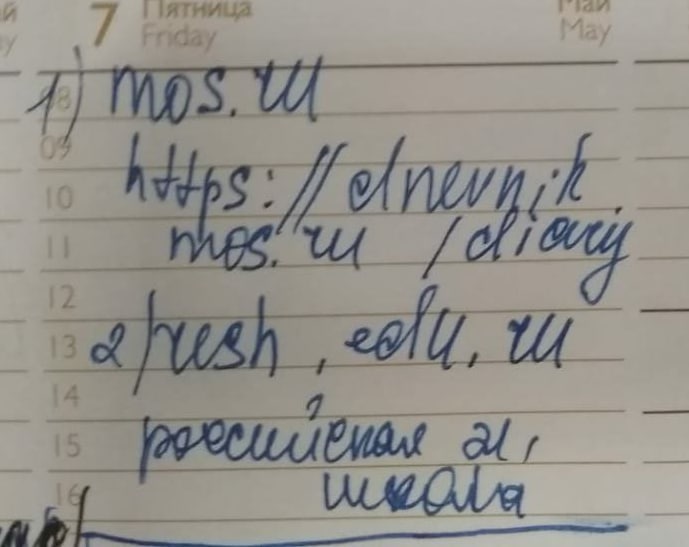 7 Пятница Май
Friday May
1) mos.ru
08
09
https://dnevnik.
10
mos.ru /diary
11
12
2) resh.edu.ru
13
14
российская эл,
15
школа
16